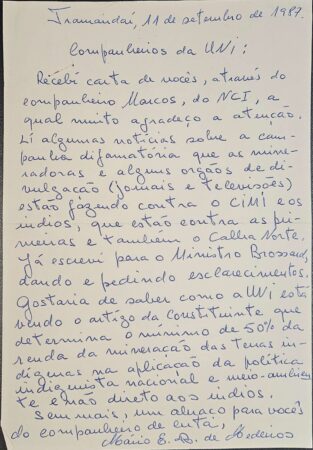 Tramandaí, 11 de setembro de 1987.
Companheiros da UNI:
Recebi carta de vocês, através do
companheiro Marcos, do NCI, a
qual muito agradeço a atenção.
Lí algumas notícias sobre a cam-
panha difamatória que as mine-
radoras e alguns orgãos de di-
vulgação (jornais e televisões)
estão fazendo contra o CIMI e os
índios, que estão contra as pri-
meiras e também o Calha Norte.
Já escrevi para o Ministro Brossard,
dando e pedindo esclarecimentos.
Gostaria de saber como a UNI está
vendo o artigo da Constituinte que
determina o mínimo de 50% da
renda da mineração das terras in-
dígenas na aplicação da política
indigenista nacional e meio-ambien
te e não direto aos índios.
Sem mais, um abraço para vocês
do companheiro de luta,
Mário E. B. de Medeiros